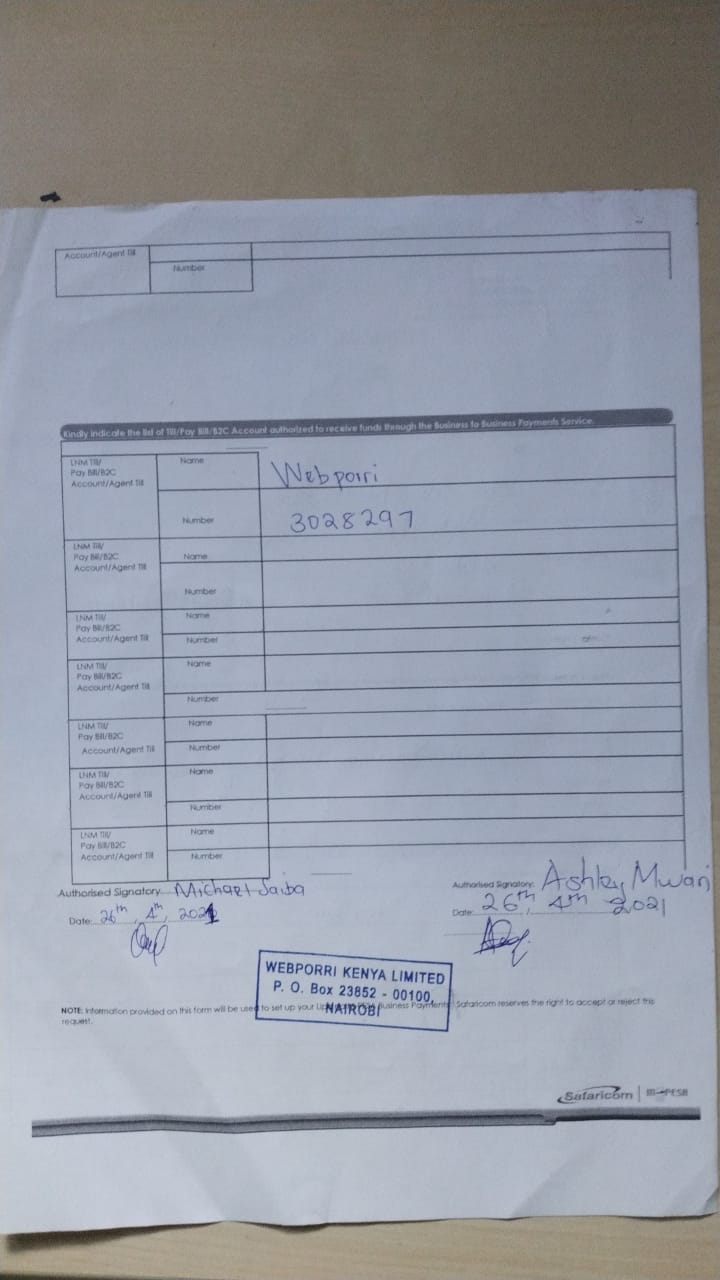 Account/Agent Till
Number
Kindly indicate the list of Till/Pay Bill/B2C Account authorized to receive funds through the Business to Business Payments Service.
LNM Till/
Pay Bill/B2C
Account/Agent Till
Name
Webporri
Number
3028297
LNM Till/
Pay Bill/B2C
Account/Agent Till
Name
Number
LNM Till/
Pay Bill/B2C
Account/Agent Till
Name
Number
LNM Till/
Pay Bill/B2C
Account/Agent Till
Name
Number
LNM Till/
Pay Bill/B2C
Account/Agent Till
Name
Number
LNM Till/
Pay Bill/B2C
Account/Agent Till
Name
Number
LNM Till/
Pay Bill/B2C
Account/Agent Till
Name
Number
Authorised Signatory: Michael
Date: 26th, 4th, 2021
Authorised Signatory: Ashley Mwari
Date: 26th, 4th 2021
WEBPORRI KENYA LIMITED
P. O. Box 23852 - 00100,
NAIROBI
NOTE: Information provided on this form will be used to set up your Business Payments. Safaricom reserves the right to accept or reject this
request.
Safaricom | m-PESA